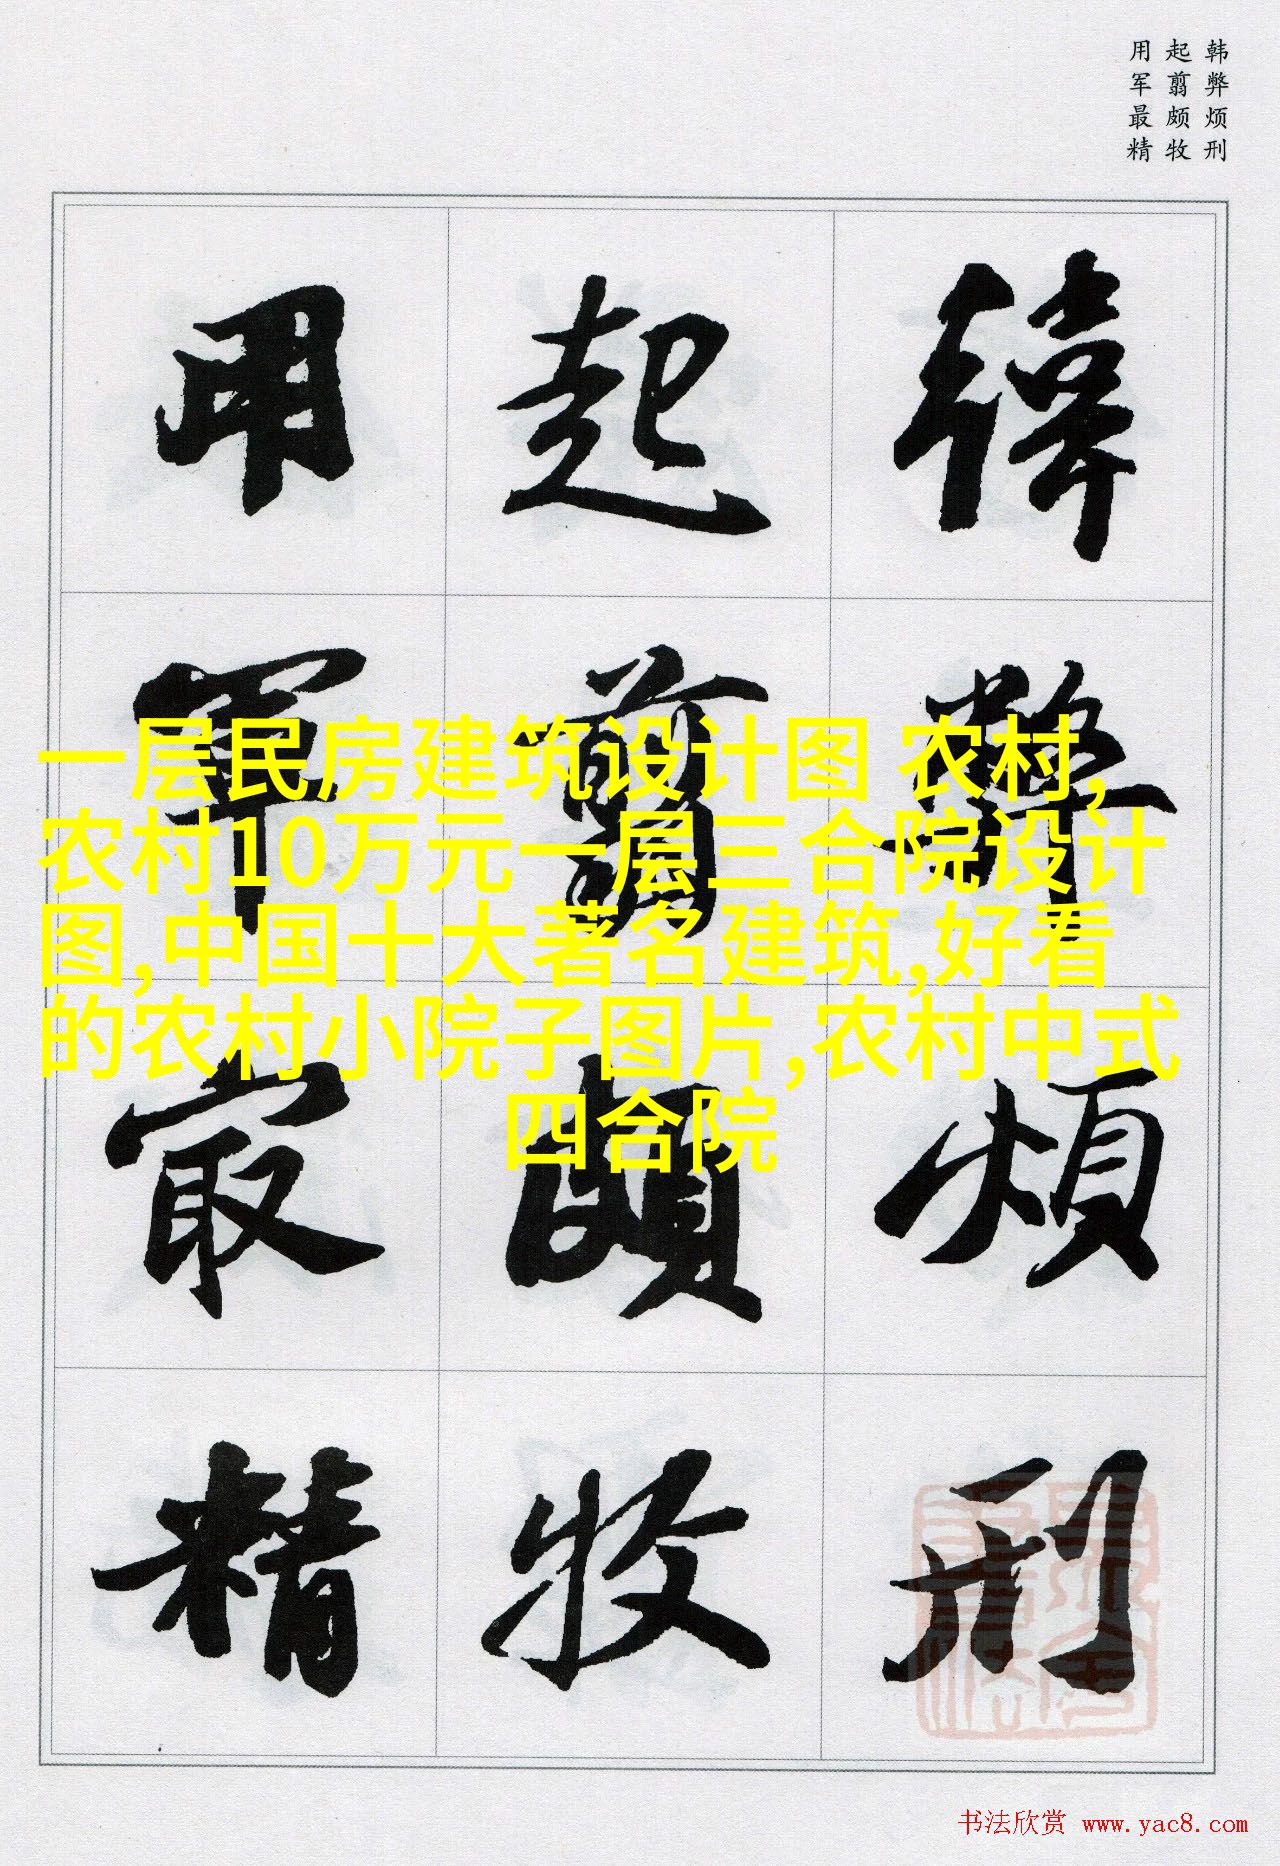 韩弊烦刑
起翦颇牧
用军最精
韓弊煩刑
起翦頗牧
用軍最精
一层民房建筑设计图 农村,
农村10万元一层三合院设计
图,中国十大著名建筑,好看
的农村小院子图片,农村中式
四合院
书法欣赏 www.yac8.com